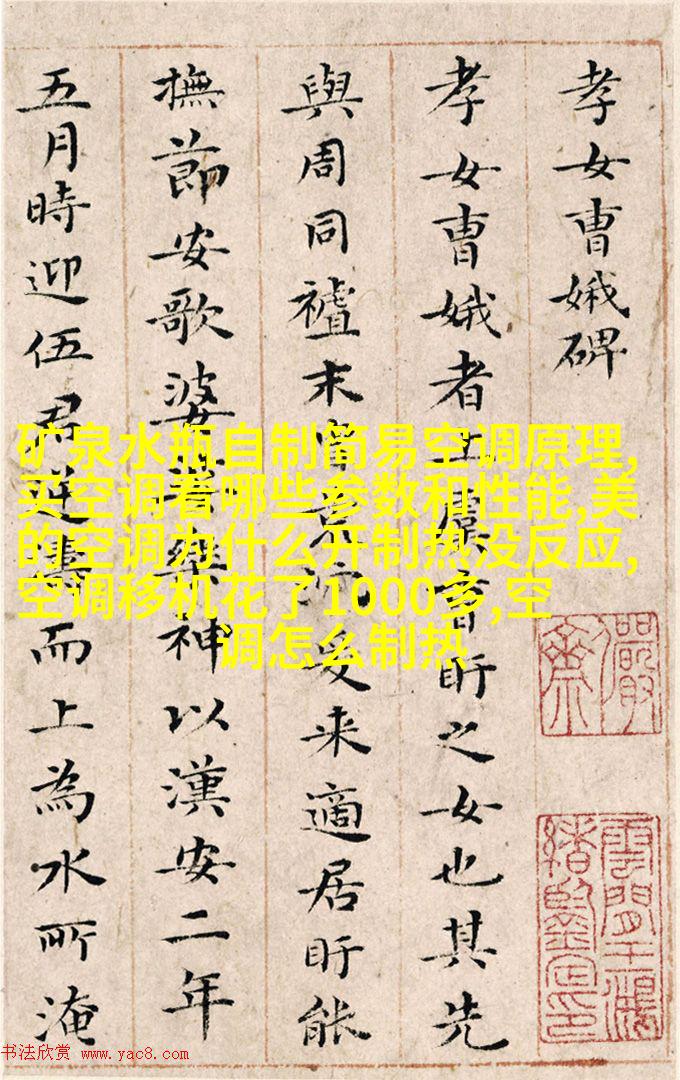 孝女曹娥碑
孝女曹娥者上虞曹盱之女也其先
與周同末胄荒沉爰来適居盱能
撫節安歌婆娑樂神以漢安二年
五月時迎伍君逆濤而上為水所淹
矿泉水瓶自制简易空调原理,
买空调看哪些参数和性能,美
的空调为什么开制热没反应,
空调移机花了1000多,空
调怎么制热
书法欣赏 www.yac8.com